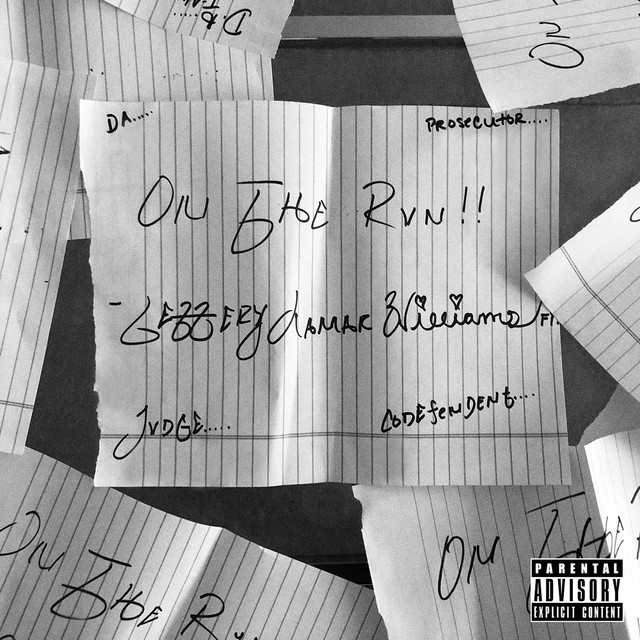 DA.....
PROSECUTOR....
ON THE RUN!!
LAMAR Williams FT.
JUDGE.....
CODEFENDENT....
ON THE R
ON THE
PARENTAL
ADVISORY
EXPLICIT CONTENT